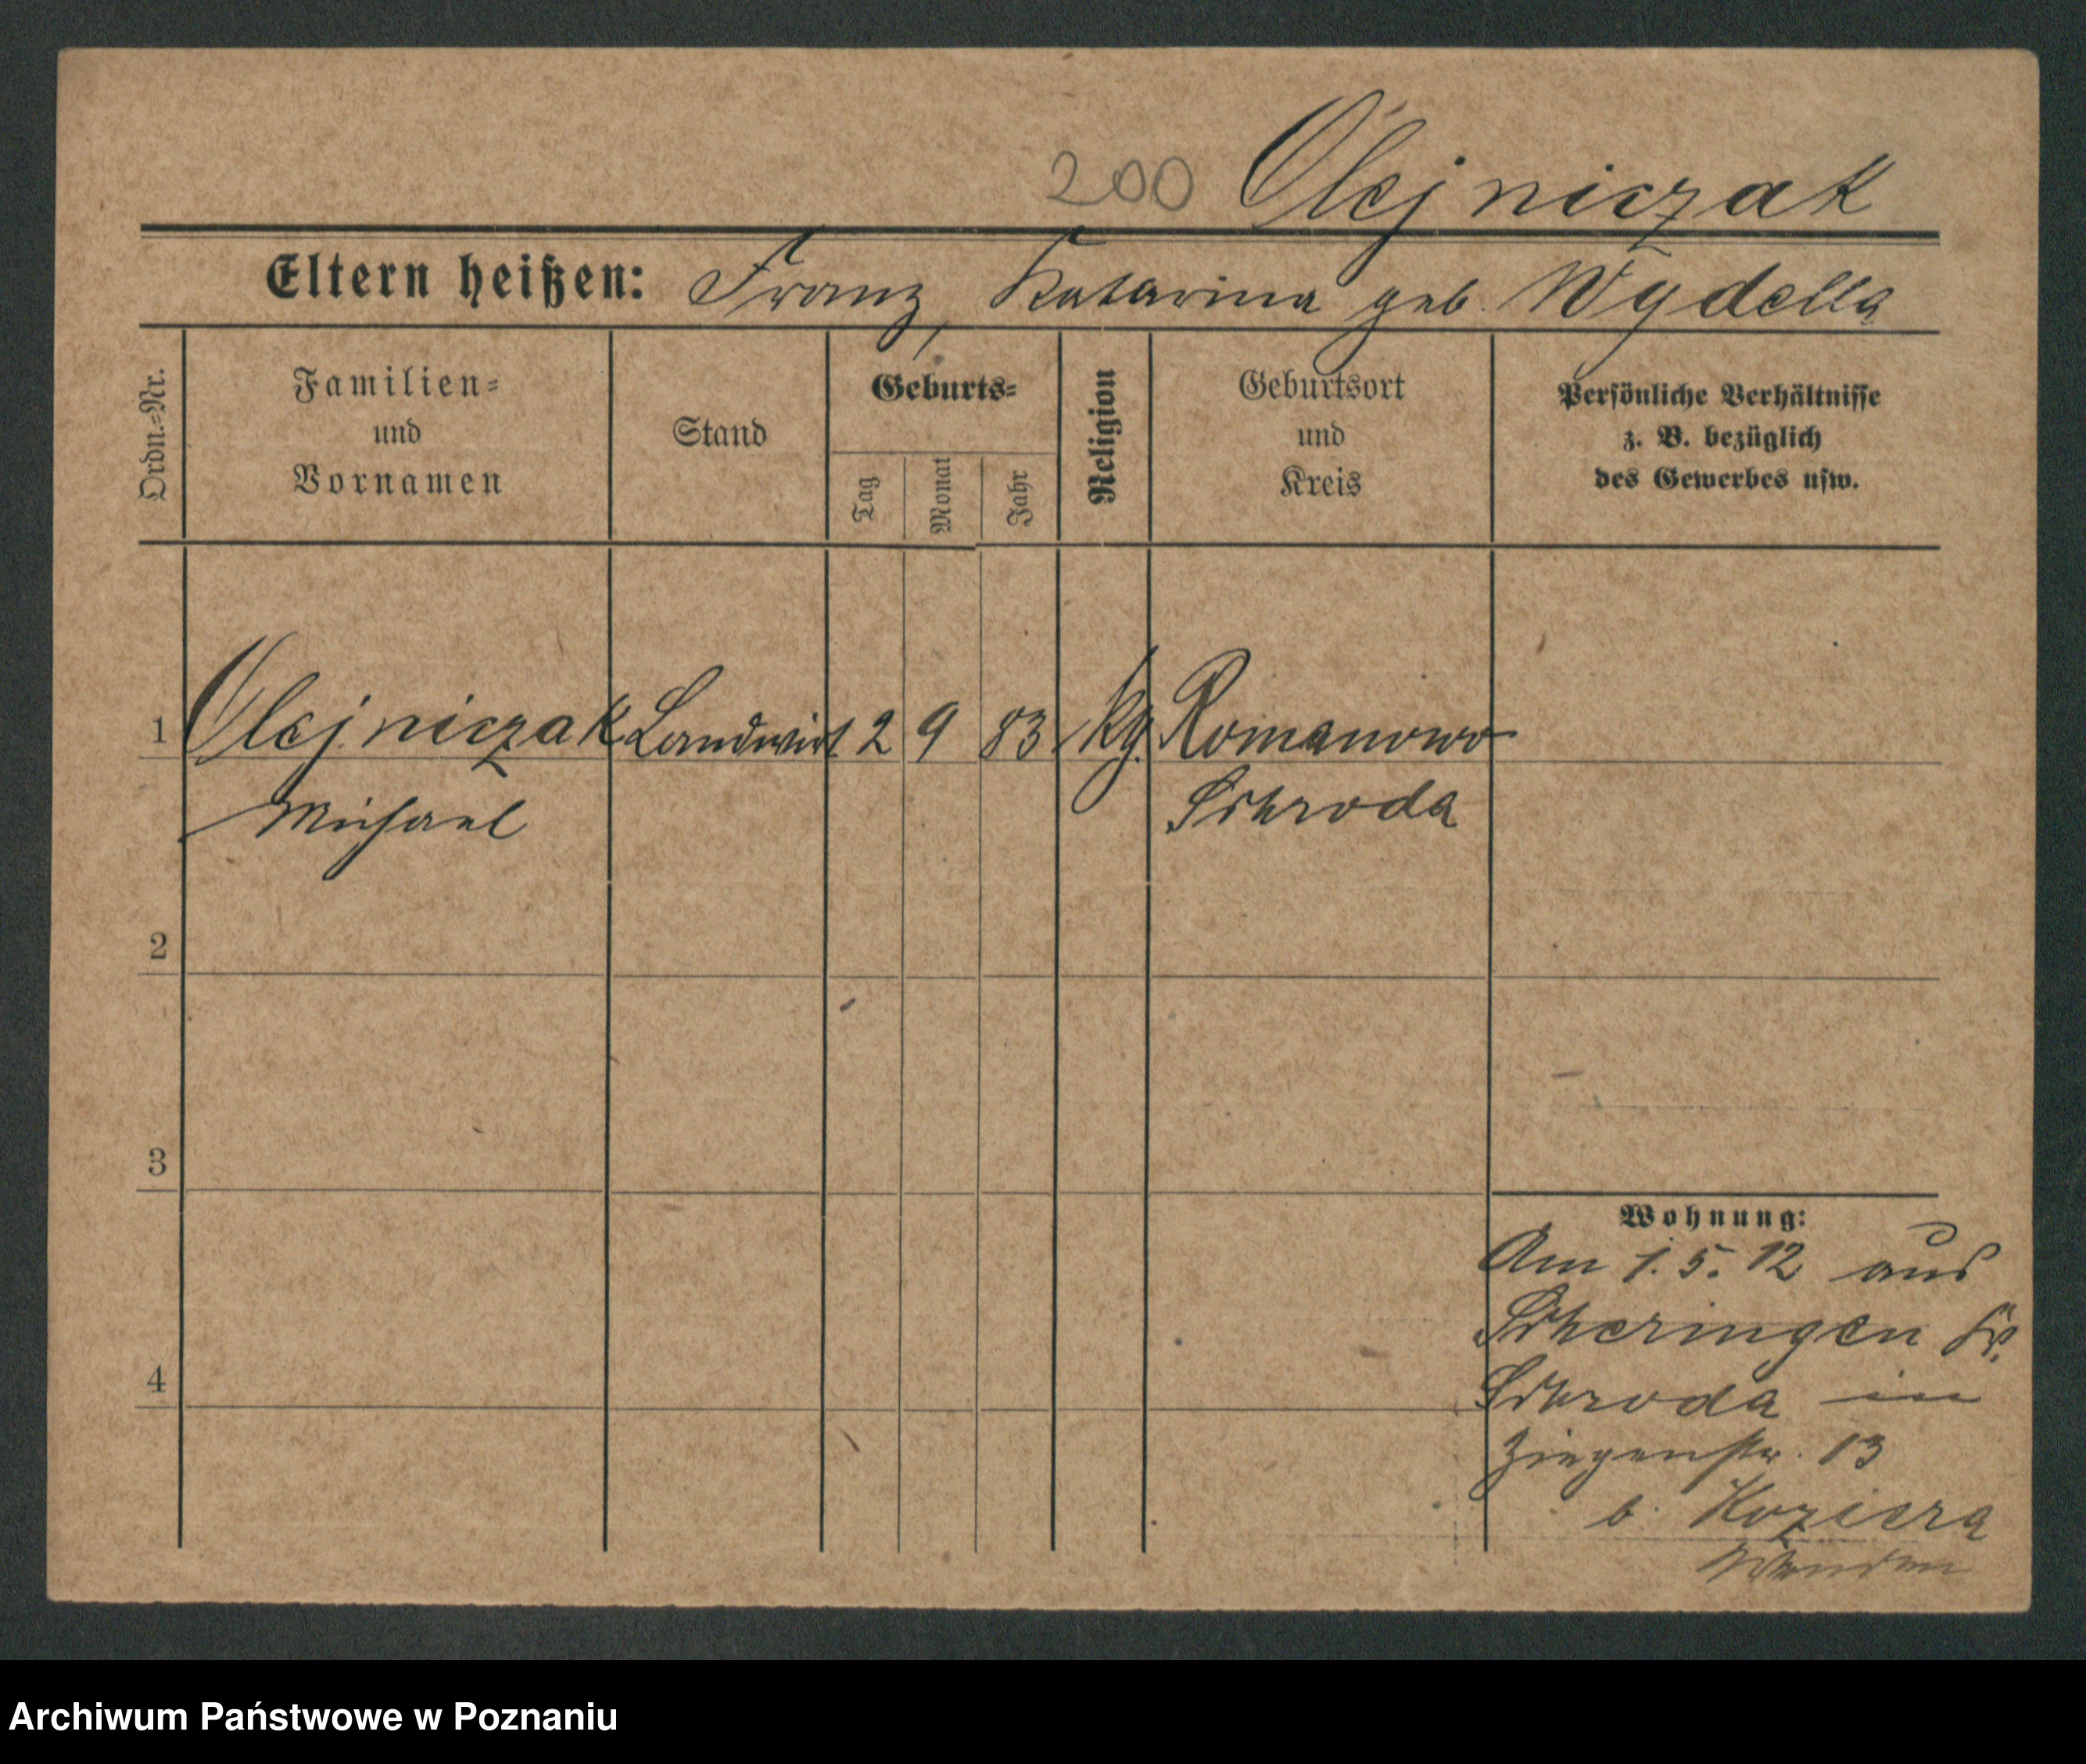 200 Olejniczak
Eltern heißen: Franz, Katarina geb. Wydella
Ordn.=Nr.
Familien=
und
Vornamen
Stand
Geburts=
Tag
Monat
Jahr
Religion
Geburtsort
und
Kreis
Persönliche Verhältnisse
z. B. bezüglich
des Gewerbes usw.
1 Olejniczak Landwirt 2 9 83 kg. Romanowo
Michael Schroda
2
3
4
Wohnung:
Am 1. 5. 12 aus
Scheringen Kr.
Schroda in
Ziegenstr. 13
b. Koziera
Wenden
Archiwum Państwowe w Poznaniu